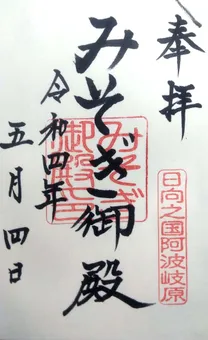 奉拝
日向之国阿波岐原
みそぎ御殿
みそぎ御殿印
令和四年
五月四日